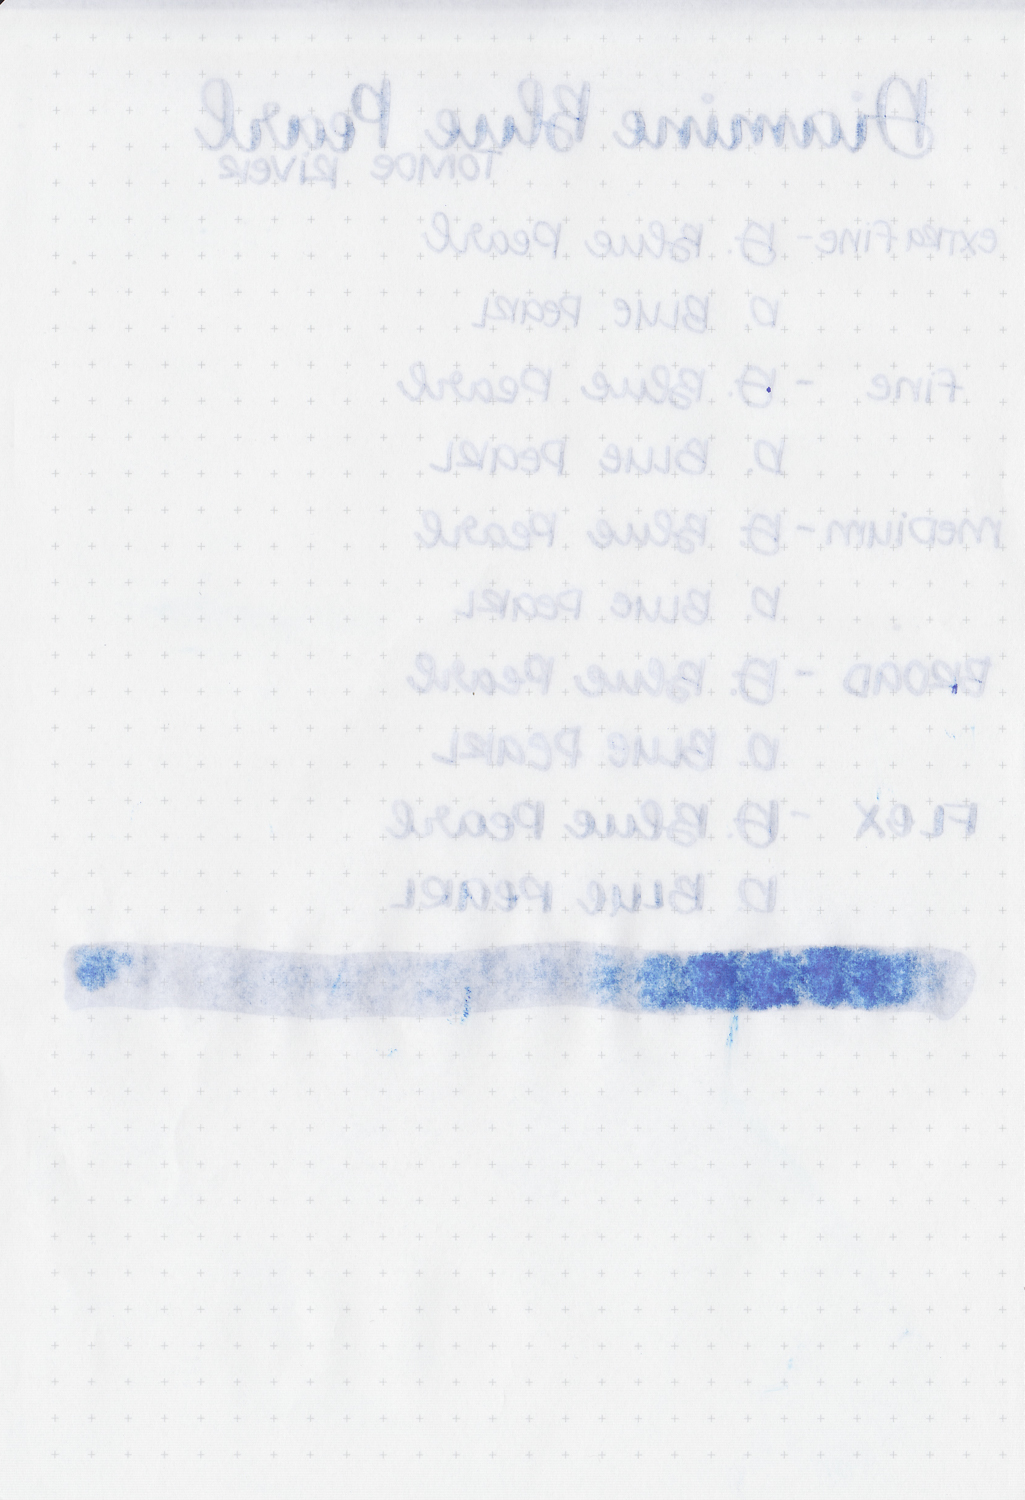 Diamine Blue Pearl
Tomoe River
extra Fine - D. Blue Pearl
D. Blue Pearl
Fine - D. Blue Pearl
D. Blue Pearl
Medium - D. Blue Pearl
D. Blue Pearl
Broad - D. Blue Pearl
D. Blue Pearl
Flex - D. Blue Pearl
D. Blue Pearl